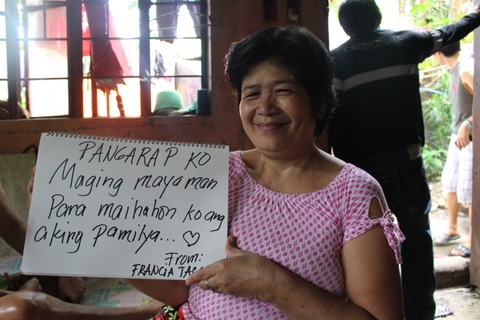 PANGARAP KO
Maging mayaman
Para maihahon ko ang
aking pamilya... ♡
From:
FRANCIA